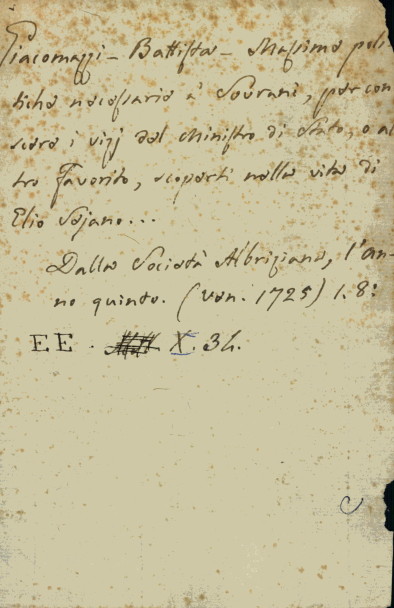 Giacomazzi - Battista - Massime poli-
tiche necessarie a' Sovrani, per con
scere i vizj del Ministro di Stato, o al
tro Favorito, scoperti nella vita di
Elio Sejano...
Dalla Società Albriziana, l'an-
no quinto. (Ven. 1725) 1. 8:
EE. X. 34.